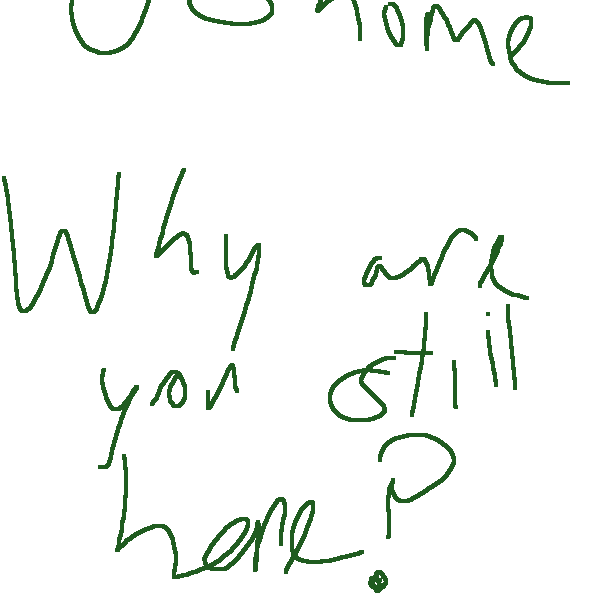 home
Why are
you still
here?